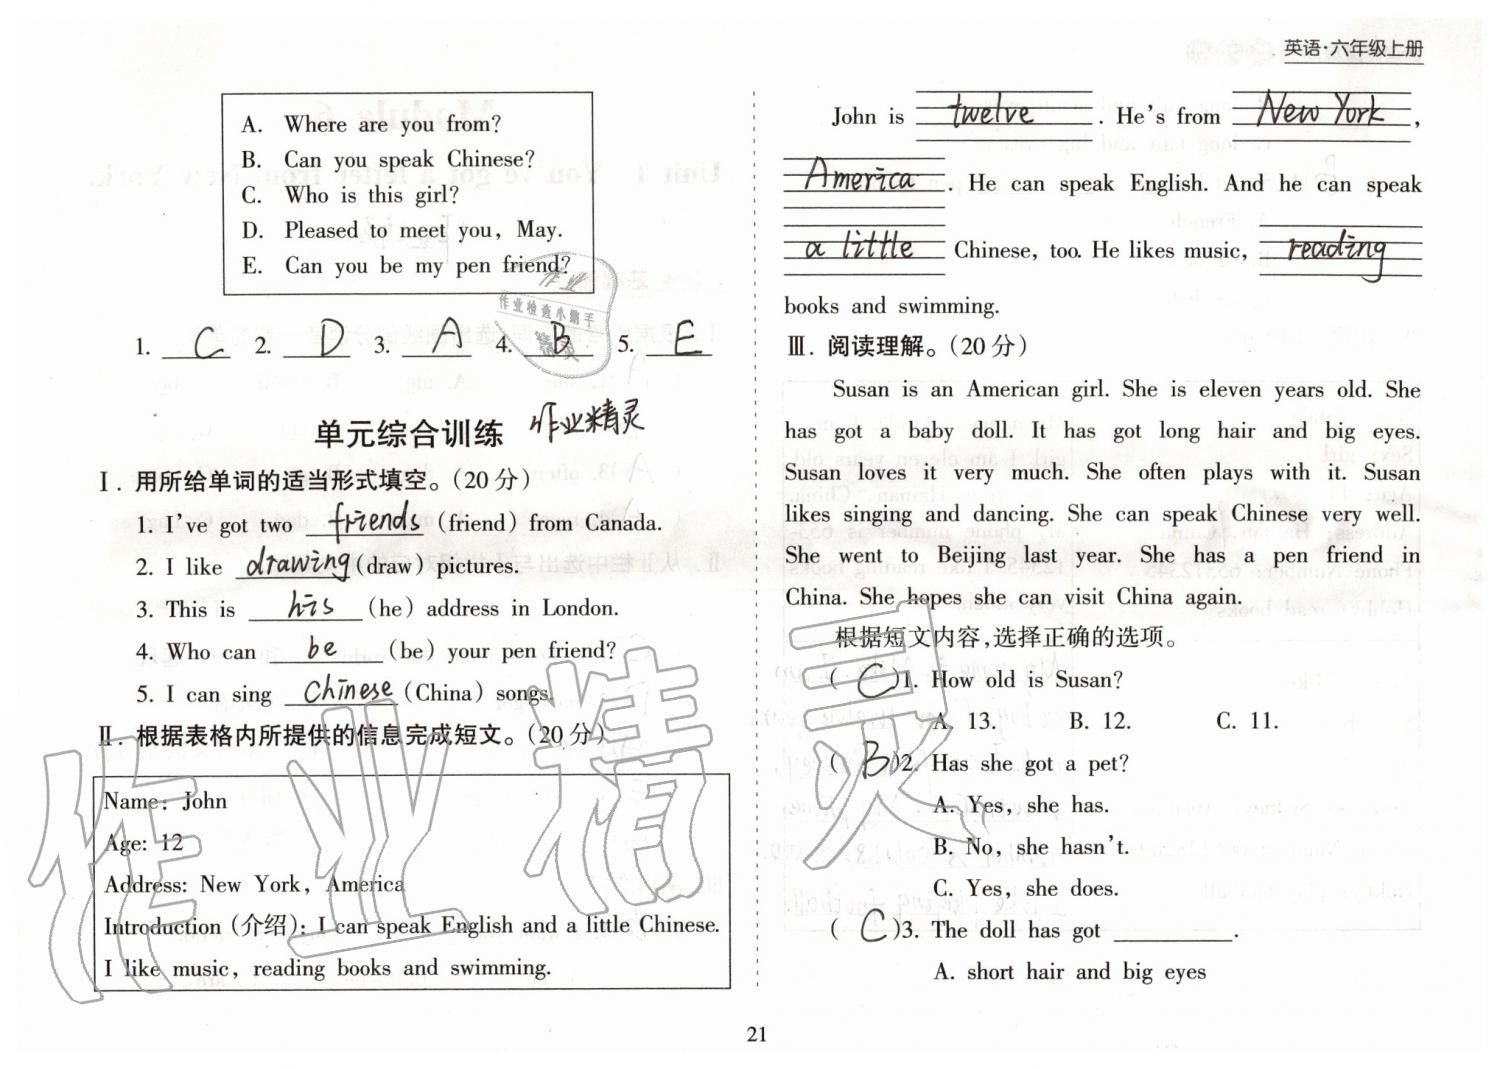 英语·六年级上册
A. Where are you from?
B. Can you speak Chinese?
C. Who is this girl?
D. Pleased to meet you, May.
E. Can you be my pen friend?
作业
作业检查小助手
精灵
1. C 2. D 3. A 4. B 5. E
单元综合训练 作业精灵
Ⅰ. 用所给单词的适当形式填空。(20分)
1. I've got two friends (friend) from Canada.
2. I like drawing (draw) pictures.
3. This is his (he) address in London.
4. Who can be (be) your pen friend?
5. I can sing Chinese (China) songs.
Ⅱ. 根据表格内所提供的信息完成短文。(20分)
Name: John
Age: 12
Address: New York, America
Introduction (介绍): I can speak English and a little Chinese.
I like music, reading books and swimming.
John is twelve. He's from New York,
America. He can speak English. And he can speak
a little Chinese, too. He likes music, reading
books and swimming.
Ⅲ. 阅读理解。(20分)
Susan is an American girl. She is eleven years old. She
has got a baby doll. It has got long hair and big eyes.
Susan loves it very much. She often plays with it. Susan
likes singing and dancing. She can speak Chinese very well.
She went to Beijing last year. She has a pen friend in
China. She hopes she can visit China again.
根据短文内容,选择正确的选项。
( C )1. How old is Susan?
A. 13. B. 12. C. 11.
( B )2. Has she got a pet?
A. Yes, she has.
B. No, she hasn't.
C. Yes, she does.
( C )3. The doll has got ________.
A. short hair and big eyes
作业精灵
21